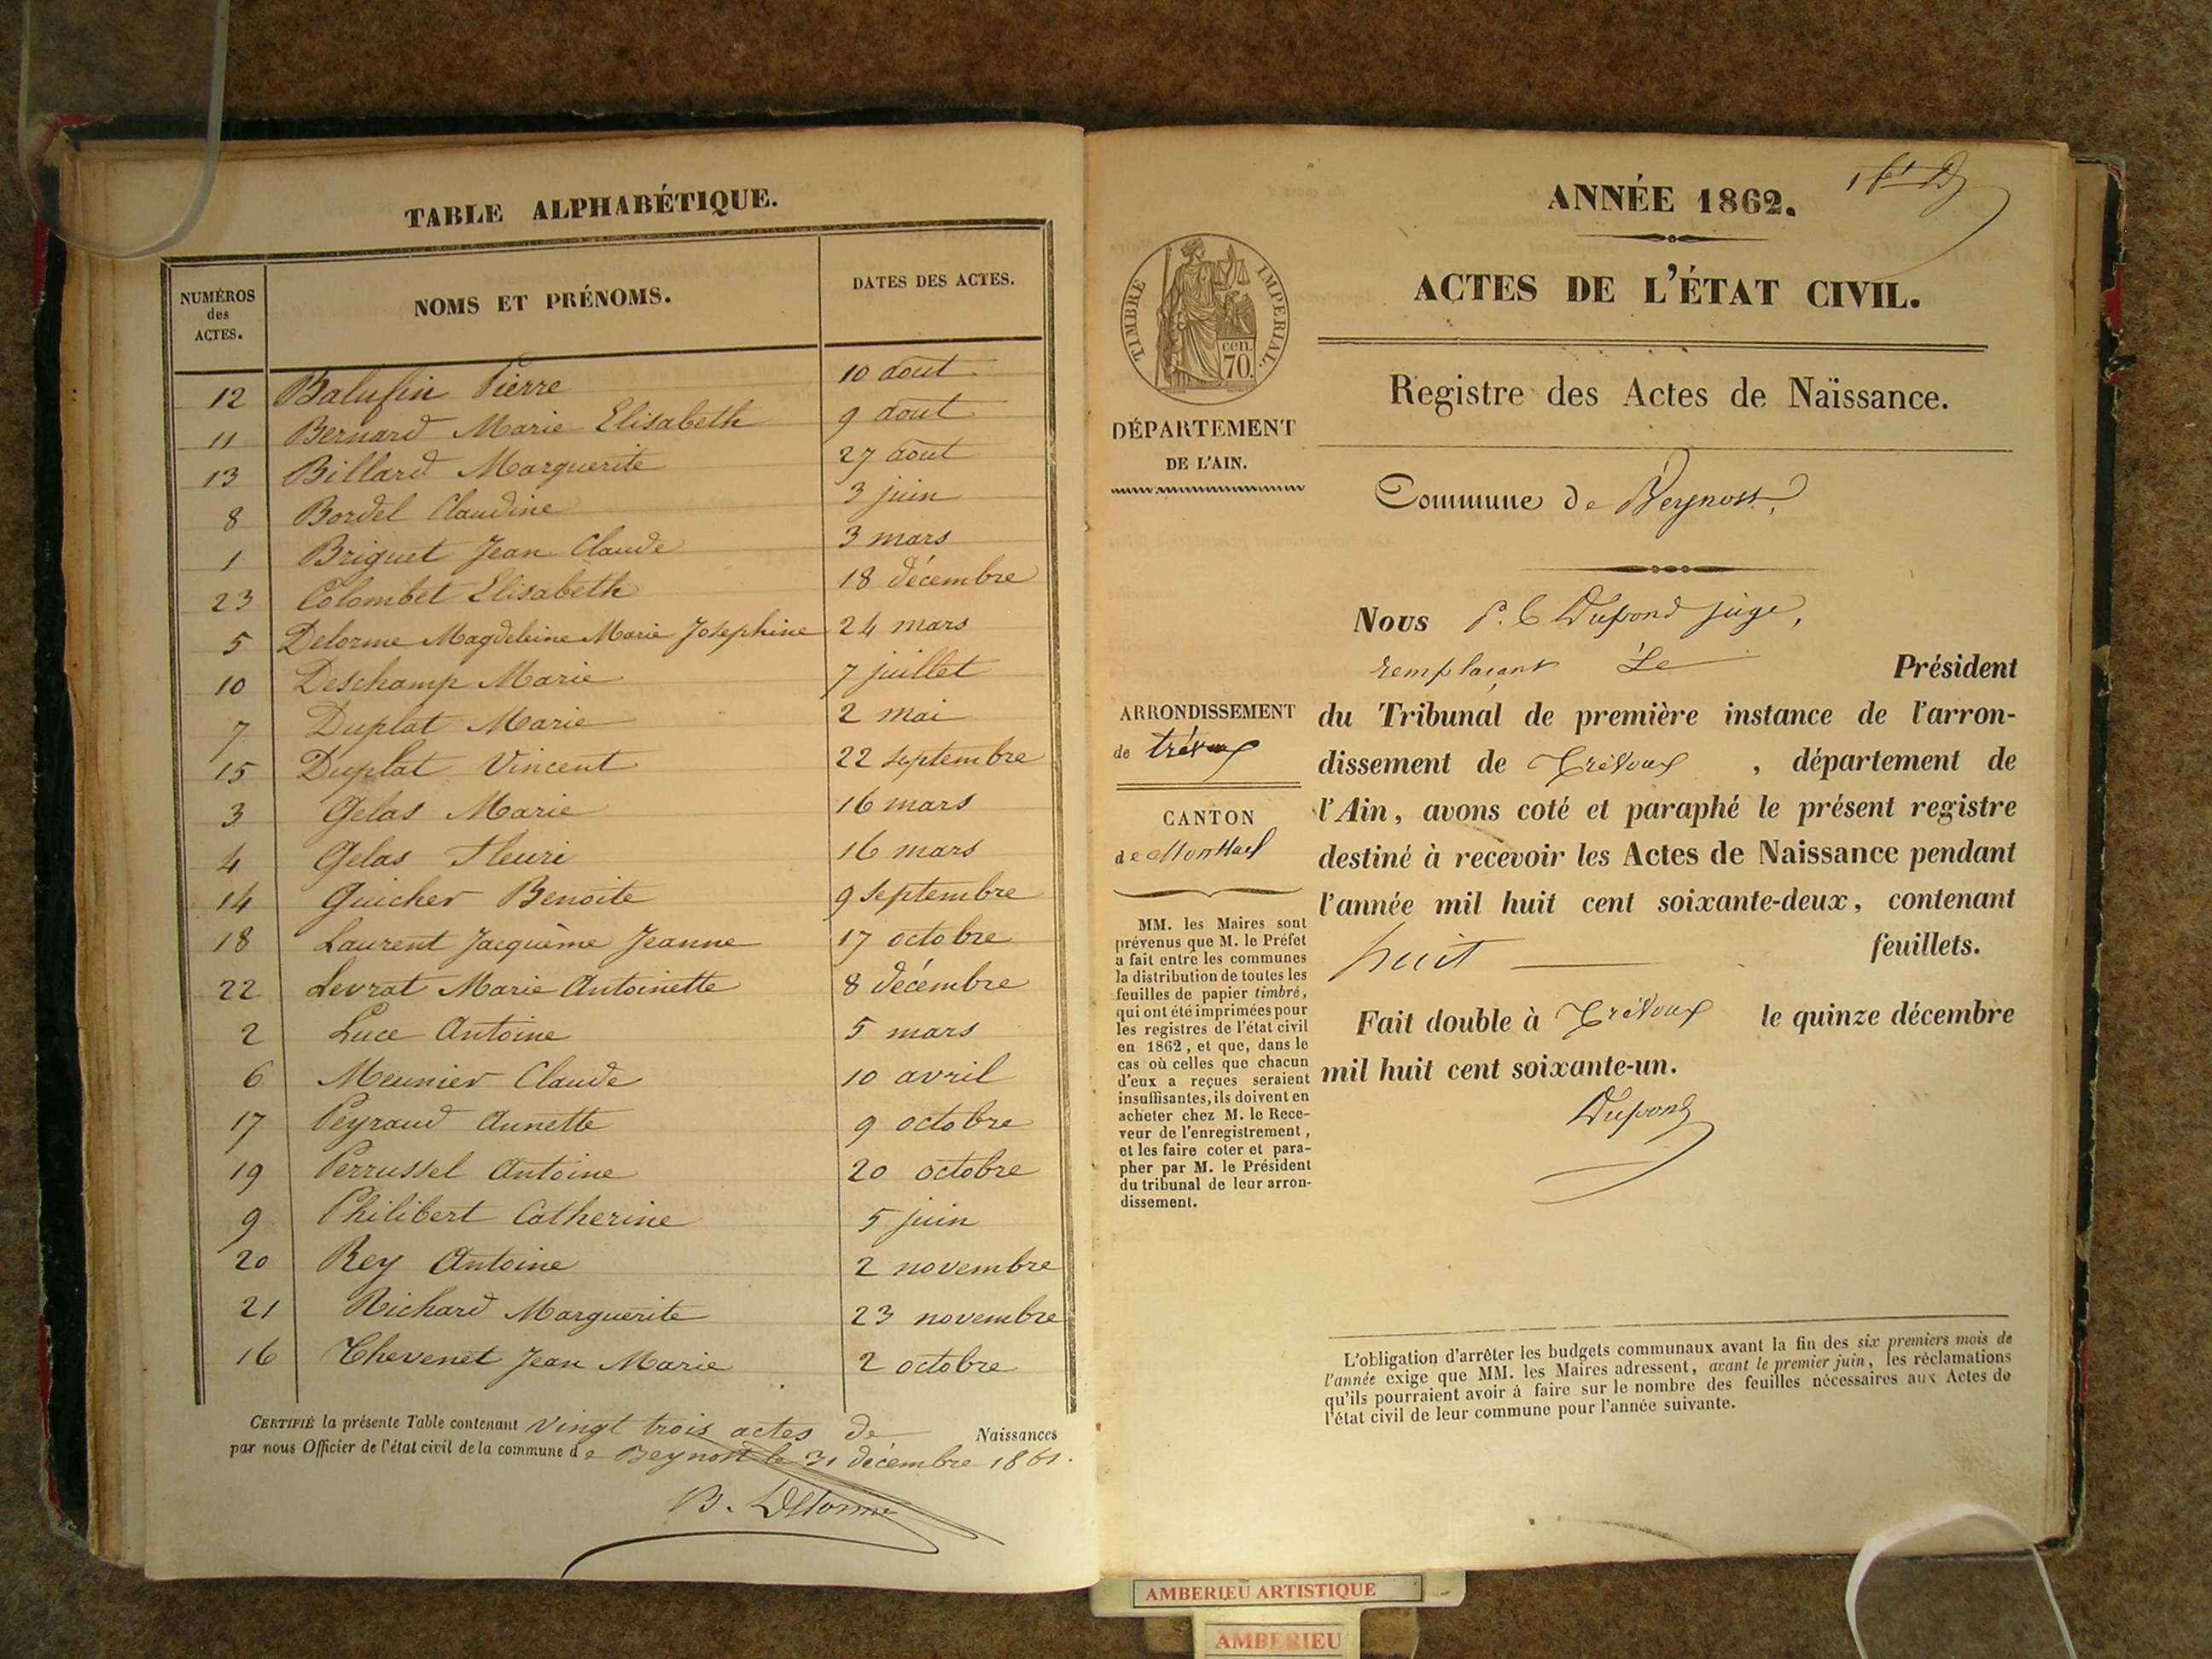 TABLE ALPHABÉTIQUE.
NUMÉROS des ACTES. NOMS ET PRÉNOMS. DATES DES ACTES.
12 Balufin Pierre 10 aout
11 Bernard Marie Elisabeth 9 aout
13 Billard Marguerite 27 aout
8 Bordel Claudine 3 juin
1 Briguet Jean Claude 3 mars
23 Colombet Elisabeth 18 décembre
5 Delorme Magdeleine Marie Josephine 24 mars
10 Deschamp Marie 7 juillet
7 Duplat Marie 2 mai
15 Duplat Vincent 22 septembre
3 Gelas Marie 16 mars
4 Gelas Fleuri 16 mars
14 Guicher Benoite 9 septembre
18 Laurent Jacquème Jeanne 17 octobre
22 Levrat Marie Antoinette 8 décembre
2 Luce Antoine 5 mars
6 Meunier Claude 10 avril
17 Peyraud Annette 9 octobre
19 Perrussel Antoine 20 octobre
9 Philibert Catherine 5 juin
20 Rey Antoine 2 novembre
21 Richard Marguerite 23 novembre
16 Thevenet Jean Marie 2 octobre
CERTIFIÉ la présente Table contenant vingt trois actes de Naissances
par nous Officier de l'état civil de la commune de Beynost le 31 décembre 1861.
B. Delorme
ANNÉE 1862.
ACTES DE L'ÉTAT CIVIL.
TIMBRE IMPERIAL.
cen.
70.
Registre des Actes de Naissance.
DÉPARTEMENT
DE L'AIN.
Commune de Beynost
Nous P. C Dupond juge,
remplaçant Le Président
ARRONDISSEMENT
de trévoux
CANTON
de Montluel
du Tribunal de première instance de l'arron-
dissement de Trévoux , département de
l'Ain, avons coté et paraphé le présent registre
destiné à recevoir les Actes de Naissance pendant
l'année mil huit cent soixante-deux, contenant
huit feuillets.
Fait double à Trévoux le quinze décembre
mil huit cent soixante-un.
Dupond
MM. les Maires sont
prévenus que M. le Préfet
a fait entre les communes
la distribution de toutes les
feuilles de papier timbré,
qui ont été imprimées pour
les registres de l'état civil
en 1862, et que, dans le
cas où celles que chacun
d'eux a reçues seraient
insuffisantes, ils doivent en
acheter chez M. le Rece-
veur de l'enregistrement,
et les faire coter et para-
pher par M. le Président
du tribunal de leur arron-
dissement.
L'obligation d'arrêter les budgets communaux avant la fin des six premiers mois de
l'année exige que MM. les Maires adressent, avant le premier juin, les réclamations
qu'ils pourraient avoir à faire sur le nombre des feuilles nécessaires aux Actes de
l'état civil de leur commune pour l'année suivante.
AMBERIEU ARTISTIQUE
AMBERIEU